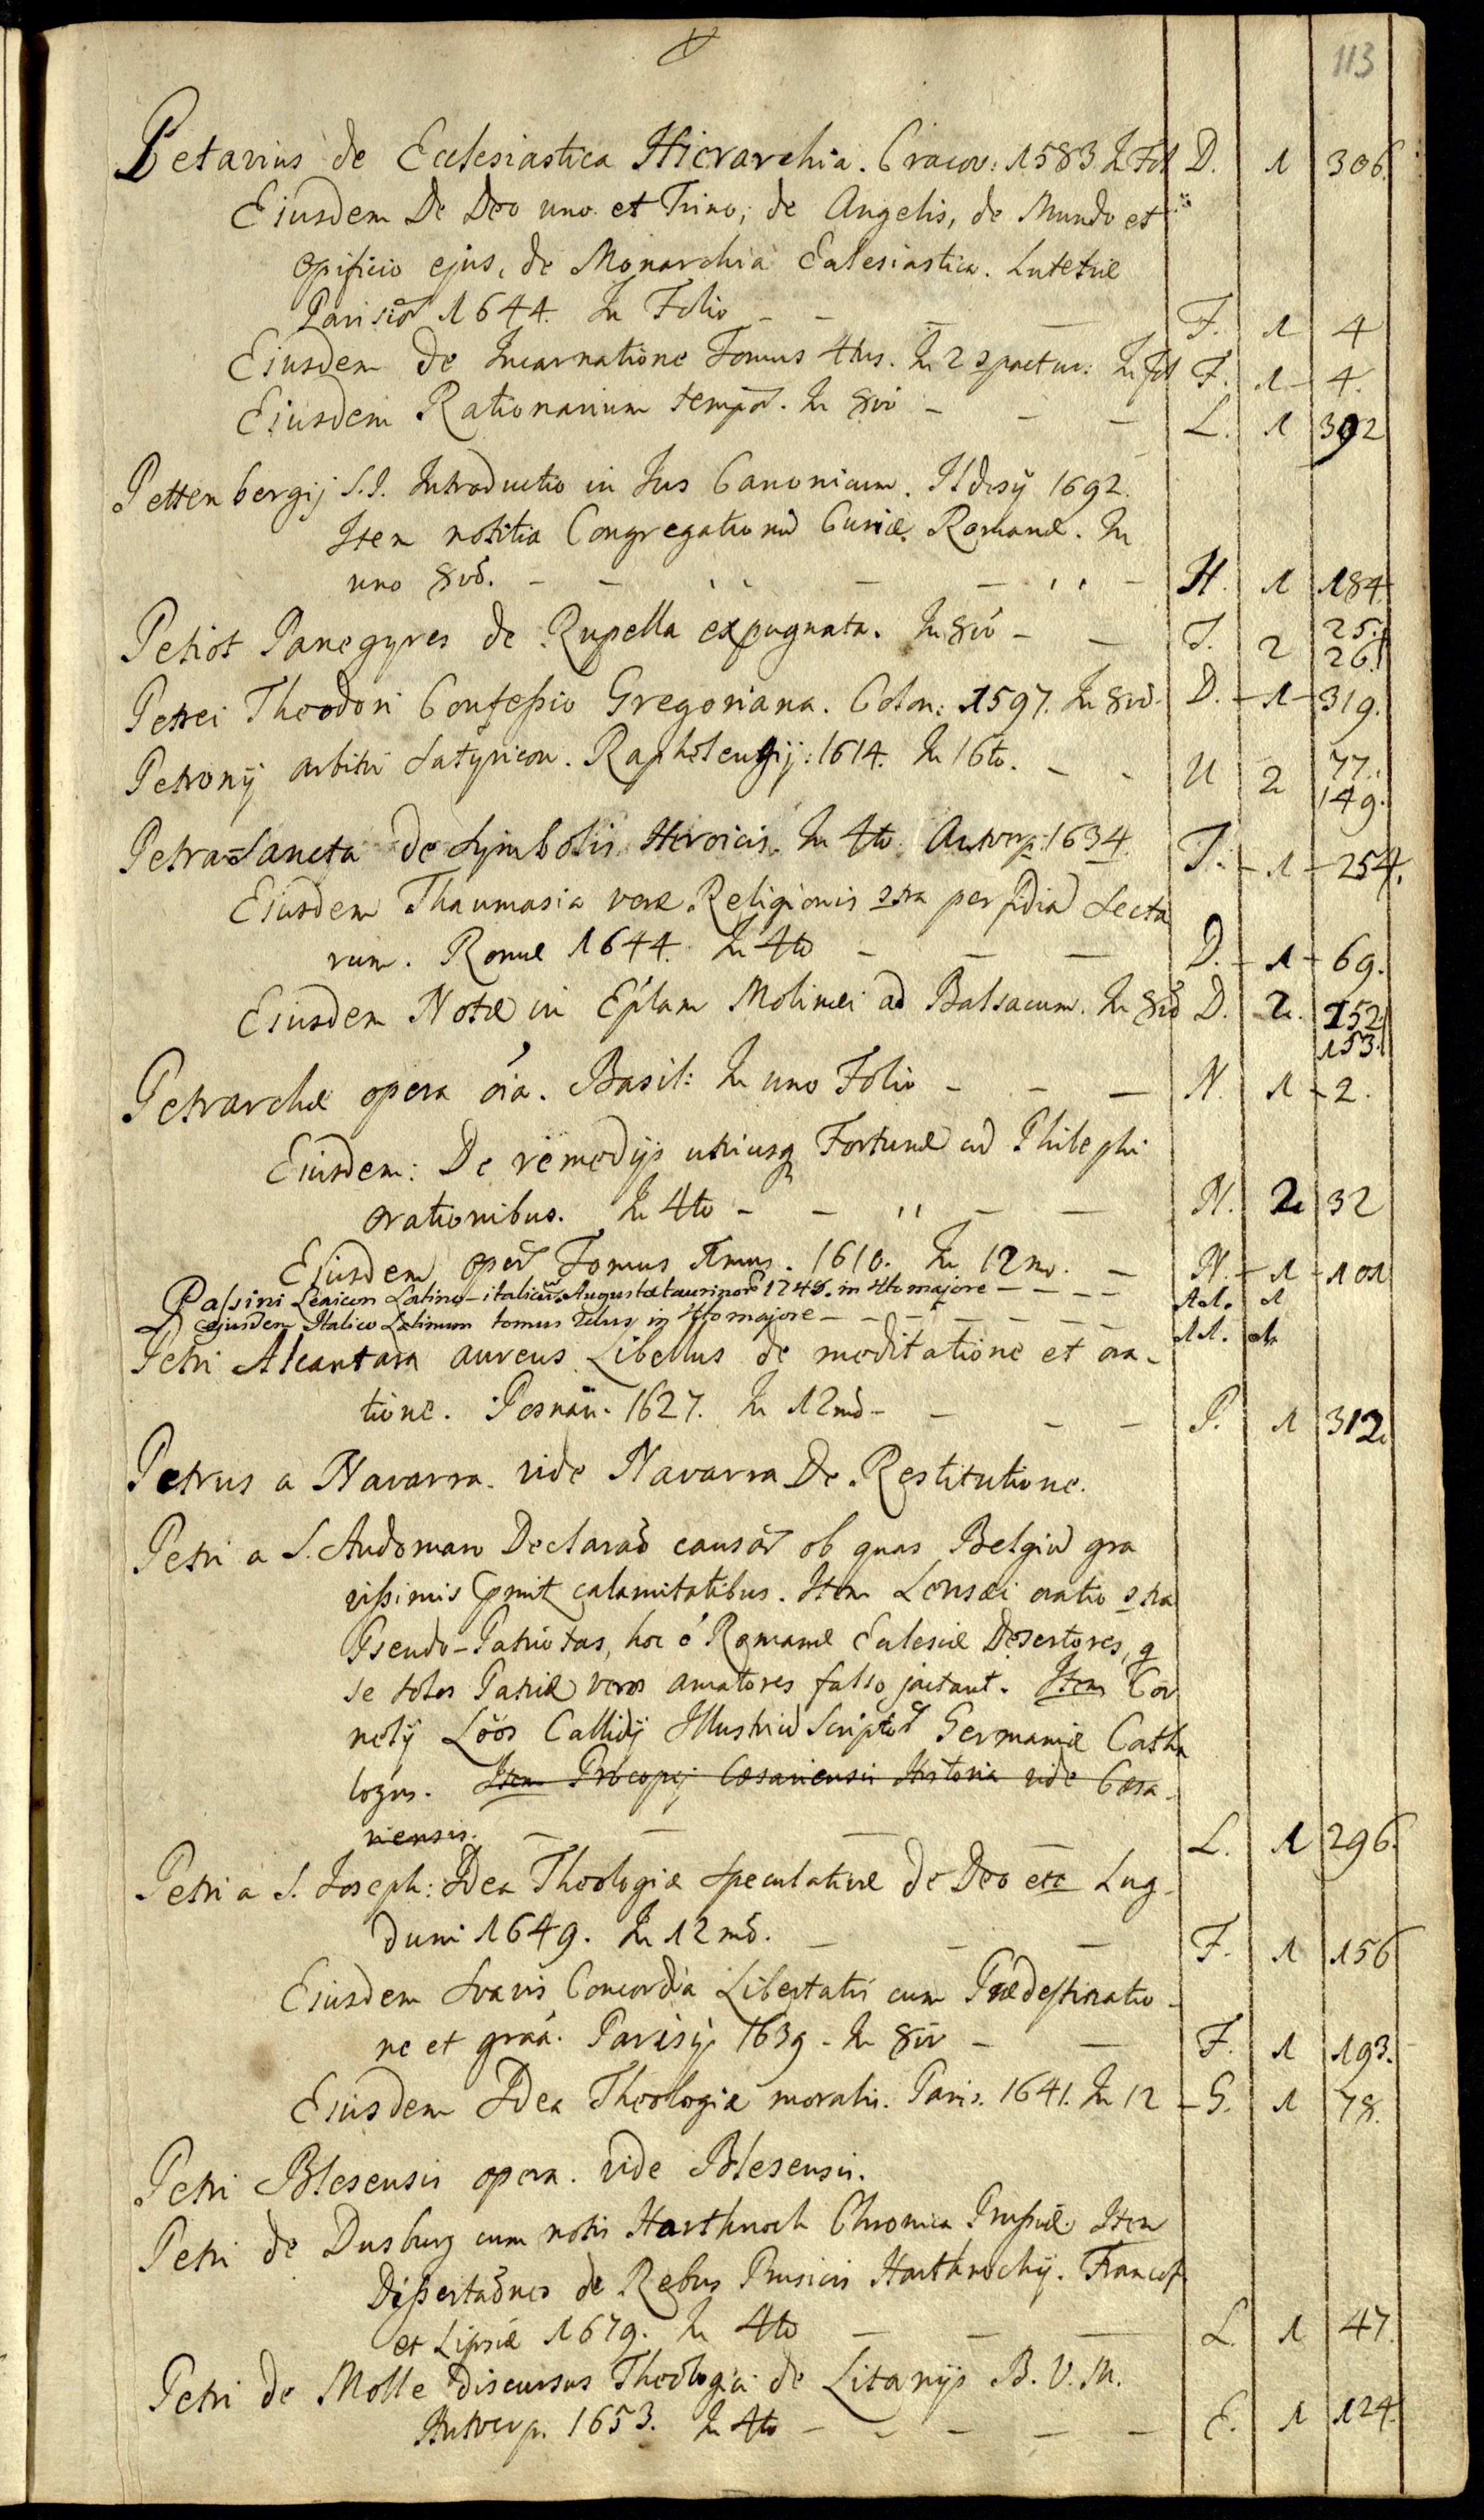 113
Petavius de Ecclesiastica Hierarchia. Cracov: 1583 In Fol D. 1 306.
Eiusdem De Deo uno et Trino, de Angelis, de Mundo et
Opificio ejus, de Monarchia Ecclesiastica. Lutetiæ
Parisior 1644. In Folio – – – – F. 1 4
Eiusdem de Incarnatione Tomus 4tus. In 2 In Fol F. 1 4.
Eiusdem Rationarium tempor. In 8vo – – – L. 1 392
Pettenbergij S.J. Introductio in Jus Canonicum. Hldesij 1692.
Item notitia Congregationu Curiæ Romanæ. In
uno 8vo. – – – – – H. 1 184.
Petiot Panegyres de Rupella expugnata. In 8vo – – T. 2 25. 26.
Petrei Theodori Confessio Gregoriana. Colon: 1597. In 8vo. D. – 1 – 319.
Petronij arbitri Satyricon. Raphelengij: 1614. In 16to. – – U 2 77. 149.
Petra=Sancta de Symbolis Heroicis. In 4to. Antverp: 1634. T. – 1 – 254.
Eiusdem Thaumasia veræ Religionis 9tra perfidia Secta
rum. Romæ 1644. In 4to – – – D. – 1 – 69.
Eiusdem Notæ in Eplam Molinæi ad Balsacum. In 8vo D. 2. 152 153.
Petrarchæ opera oia. Basil: In uno Folio – – – N. 1 – 2.
Eiusdem: De remedijs utriusq Fortunæ cu Philephi
orationibus. In 4to – – – – N. 2 32
Eiusdem oper Tomus 1mus. 1610. In 12mo. – N. – 1 – 101
Passini Lexicon Latino-italicu. Augustæ taurinor 1746. in 4to majore – – – – AA. 1
ejusdem Italico Latinum tomus 2dus in 4to majore – – – – – – AA. 1
Petri Alcantara aureus Libellus de meditatione et ora-
tione. Posnan. 1627. In 12mo – – – – P. 1 312.
Petrus a Navarra. vide Navarra De Restitutione.
Petri a S. Audomaro Declarao causar ob quas Belgiu gra
vissimis pmit calamitatibus. Item Lensæi oratio 9tra
Pseudo-Patriotas, hoc e Romanæ Ecclesiæ Desertores, q
se solos Patriæ veros amatores falso jactant. Item Cor
nelij Löös Callidij Illustriu Scriptor Germaniæ Catha
logus. Item Procopij Cæsariensis Historia vide Cæsa-
riensis. – – – – L. 1 296.
Petri a S. Joseph: Idea Theologiæ speculativæ de Deo etc Lug-
duni 1649. In 12mo. – – – F. 1 156
Eiusdem Suavis Concordia Libertatis cum Prædestinatio-
ne et graa. Parisijs 1639. In 8vo – – F. 1 193.
Eiusdem Idea Theologiæ moralis. Paris. 1641. In 12 – G. 1 78.
Petri Blesensis opera. vide Blesensis.
Petri de Dusburg cum notis Harthnoch Chronica Prussiæ Item
Dissertaones de Rebus Prusicis Harthnochij. Francof
et Lipsiæ 1679. In 4to – – – L. 1 47.
Petri de Molle Discursus Theologici de Litanijs B. V. M.
Antverp. 1653. In 4to – – – – – E. 1 124.